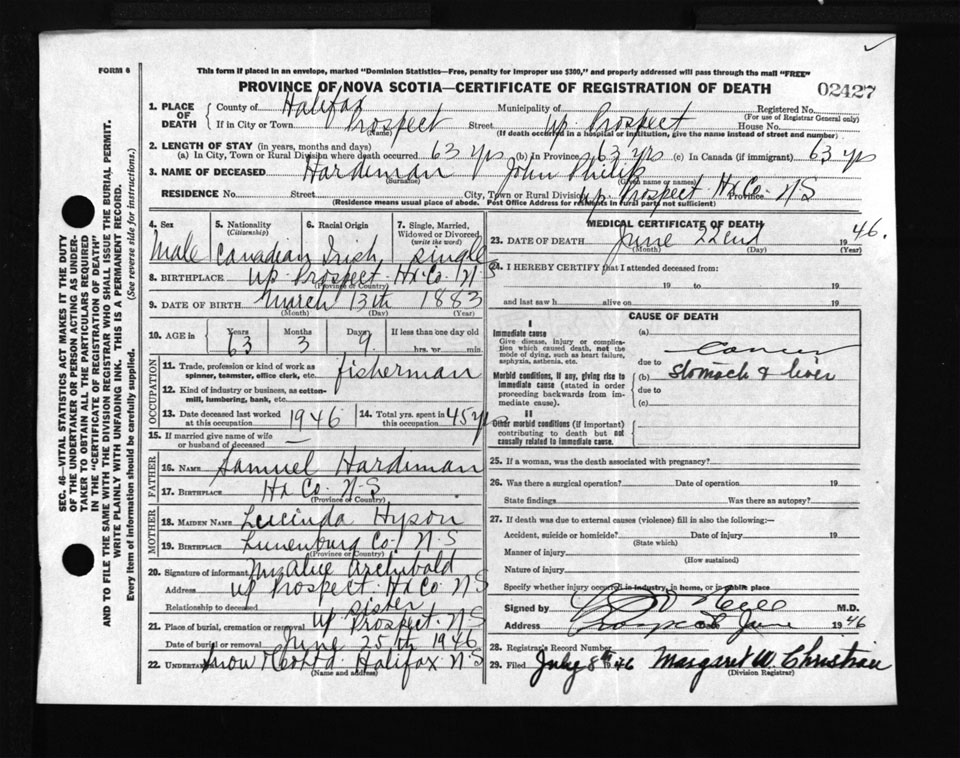 FORM 6
This form if placed in an envelope, marked "Dominion Statistics—Free, penalty for improper use $300," and properly addressed will pass through the mail "FREE"
PROVINCE OF NOVA SCOTIA—CERTIFICATE OF REGISTRATION OF DEATH 02427
SEC. 46—VITAL STATISTICS ACT MAKES IT THE DUTY
OF THE UNDERTAKER OR PERSON ACTING AS UNDER-
TAKER TO OBTAIN ALL THE PARTICULARS REQUIRED
IN THE "CERTIFICATE OF REGISTRATION OF DEATH"
AND TO FILE THE SAME WITH THE DIVISION REGISTRAR WHO SHALL ISSUE THE BURIAL PERMIT.
WRITE PLAINLY WITH UNFADING INK. THIS IS A PERMANENT RECORD.
Every item of information should be carefully supplied. (See reverse side for instructions.)
1. PLACE OF DEATH County of Halifax Municipality of Registered No.
(For use of Registrar General only)
If in City or Town Prospect Street Up. Prospect House No.
(Name) (If death occurred in a hospital or institution, give the name instead of street and number)
2. LENGTH OF STAY (in years, months and days)
(a) In City, Town or Rural Division where death occurred 63 yrs (b) In Province 63 yrs (c) In Canada (if immigrant) 63 yrs
3. NAME OF DECEASED Hardiman John Philip
(Surname) (Given name or names)
RESIDENCE No. Street City, Town or Rural Division Up. Prospect Hx Co. Province N S
(Residence means usual place of abode. Post Office Address for residents in rural parts not sufficient)
4. Sex 5. Nationality (Citizenship) 6. Racial Origin 7. Single, Married, Widowed or Divorced (write the word)
Male Canadian Irish single
8. BIRTHPLACE Up. Prospect Hx Co. N S
(Province or Country)
9. DATE OF BIRTH March 13th 1883
(Month) (Day) (Year)
10. AGE in Years Months Days If less than one day old
63 3 9 hrs. or min.
OCCUPATION
11. Trade, profession or kind of work as spinner, teamster, office clerk, etc. fisherman
12. Kind of industry or business, as cotton-mill, lumbering, bank, etc.
13. Date deceased last worked at this occupation 1946 14. Total yrs. spent in this occupation 45 yrs
15. If married give name of wife or husband of deceased —
FATHER
16. NAME Samuel Hardiman
17. BIRTHPLACE Hx Co. N-S
(Province or Country)
MOTHER
18. MAIDEN NAME Lucinda Hyson
19. BIRTHPLACE Lunenburg Co. N S
(Province or Country)
20. Signature of informant Archibald
Address Up Prospect. Hx Co N S
Relationship to deceased sister
21. Place of burial, cremation or removal Up Prospect. N S
Date of burial or removal June 25th 1946
22. UNDERTAKER Snow & Co Ltd. Halifax N S
(Name and address)
MEDICAL CERTIFICATE OF DEATH
23. DATE OF DEATH June 22nd 1946.
(Month) (Day) (Year)
24. I HEREBY CERTIFY that I attended deceased from:
19 to 19
and last saw h alive on 19
CAUSE OF DEATH
I
Immediate cause (a)
Give disease, injury or complication which caused death, not the mode of dying, such as heart failure, asphyxia, asthenia, etc.
due to Cancer
Morbid conditions, if any, giving rise to immediate cause (stated in order proceeding backwards from immediate cause).
(b) Stomach & liver
due to
(c)
II
Other morbid conditions (if important) contributing to death but not causally related to immediate cause.
25. If a woman, was the death associated with pregnancy?
26. Was there a surgical operation? Date of operation 19
State findings Was there an autopsy?
27. If death was due to external causes (violence) fill in also the following:—
Accident, suicide or homicide? Date of injury 19
(State which)
Manner of injury
(How sustained)
Nature of injury
Specify whether injury occurred in industry, in home, or in public place
Signed by M.D.
Address Prospect Date June 1946
28. Registrar's Record Number
29. Filed July 8th 1946 Margaret W. Christian
(Division Registrar)